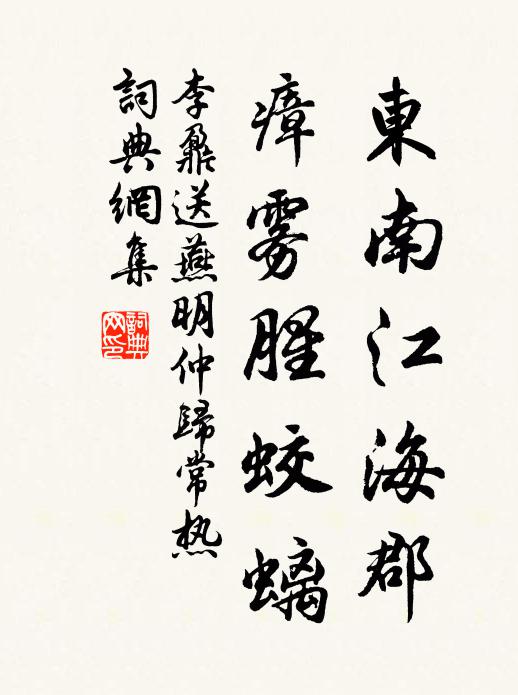 東南江海郡
瘴雾腥蛟螭
李鼐送燕明仲歸常热
詞典網集
詞典网印